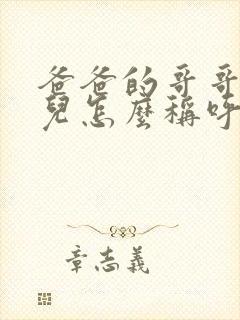 爸爸的哥哥
兒怎麼稱呼
章志義